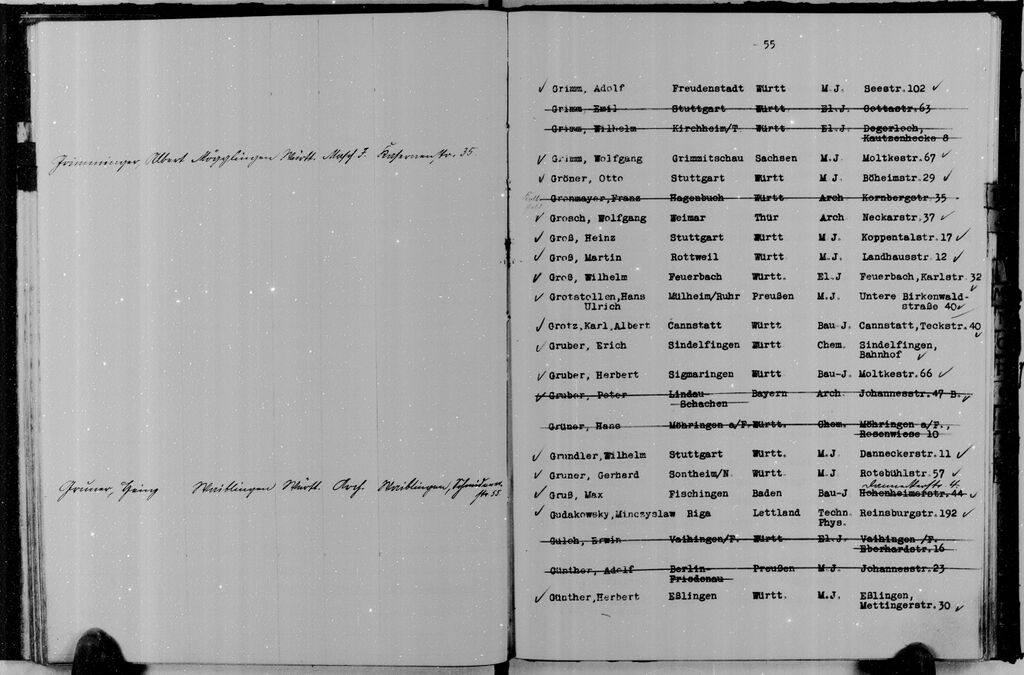 Grimminger, Albert Mögglingen Württ. Masch J. Kasernenstr. 35
Gruner, Heinz Waiblingen Württ. Arch. Waiblingen,
str. 55
- 55
Grimm, Adolf Freudenstadt Württ M.J. Seestr.102
Grimm, Emil Stuttgart Württ El.J. Cottastr.63
Grimm, Wilhelm Kirchheim/T. Württ El.J. Degerloch,
Kautzenhecke 8
Grimm, Wolfgang Grimmitschau Sachsen M.J. Moltkestr.67
Gröner, Otto Stuttgart Württ M.J. Böheimstr.29
Gronmayer,Franz Hagenbuch Württ Arch Kornbergstr 35
Grosch, Wolfgang Weimar Thür Arch Neckarstr.37
Groß, Heinz Stuttgart Württ M.J. Koppentalstr.17
Groß, Martin Rottweil Württ M.J. Landhausstr 12
Groß, Wilhelm Feuerbach Württ. El.J Feuerbach,Karlstr 32
Grotstollen,Hans Mülheim/Ruhr Preußen M.J. Untere Birkenwald-
Ulrich straße 40
Grotz,Karl,Albert Cannstatt Württ Bau-J. Cannstatt,Teckstr.40
Gruber, Erich Sindelfingen Württ Chem. Sindelfingen,
Bahnhof
Gruber, Herbert Sigmaringen Württ Bau-J. Moltkestr.66
Gruber, Peter Lindau- Bayern Arch. Johannesstr.47 B.
Schachen
Grüner, Hans Möhringen a/F. Württ. Chem. Möhringen a/F.,
Rosenwiese 10
Grundler,Wilhelm Stuttgart Württ. M.J. Danneckerstr.11
Gruner, Gerhard Sontheim/N Württ. M.J Rotebühlstr.57
Gruß, Max Fischingen Baden Bau-J Hohenheimerstr.44
Gudakowsky,Minczyslaw Riga Lettland Techn. Reinsburgstr.192
Phys.
Gulch, Erwin Vaihingen/F. Württ El.J. Vaihingen /F.
Eberhardstr.16
Günther, Adolf Berlin- Preußen M.J. Johannesstr.23
Friedenau
Günther,Herbert Eßlingen Württ. M.J. Eßlingen,
Mettingerstr.30